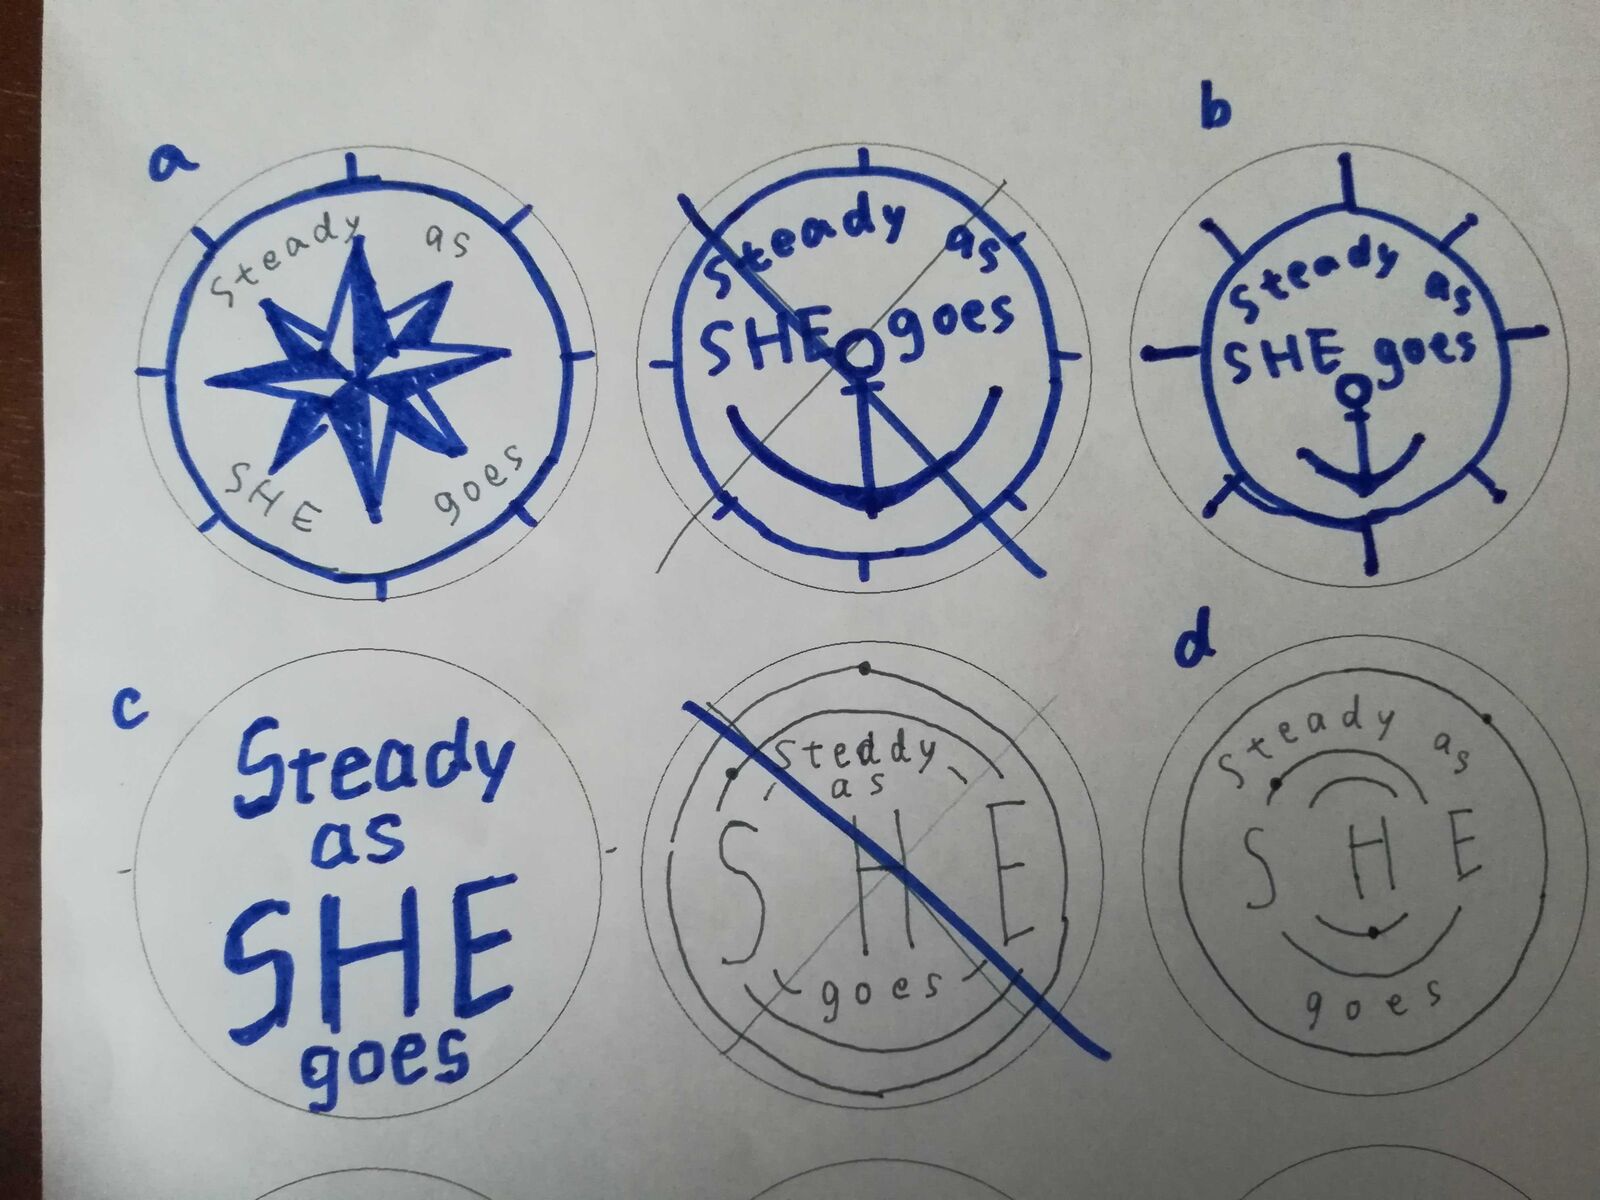 a
Steady as
SHE goes
Steady as
SHE goes
b
Steady as
SHE goes
c
Steady
as
SHE
goes
Steddy
as
S H E
goes
d
Steady as
S H E
goes